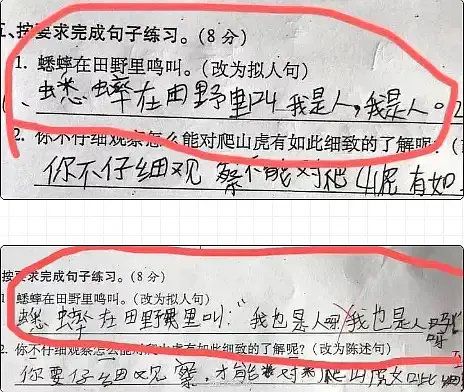 按要求完成句子练习。(8分)
1. 蟋蟀在田野里鸣叫。(改为拟人句)
蟋蟀在田野里叫我是人,我是人。
2. 你不仔细观察怎么能对爬山虎有如此细致的了解呢?(
你不仔细观察不能对爬山虎有如
按要求完成句子练习。(8分)
1 蟋蟀在田野里鸣叫。(改为拟人句)
蟋蟀在田野里叫:“我也是人 我也是人
2. 你不仔细观察怎么能对爬山虎有如此细致的了解呢?(改为陈述句)
你要仔细观察,才能对爬山虎有如此